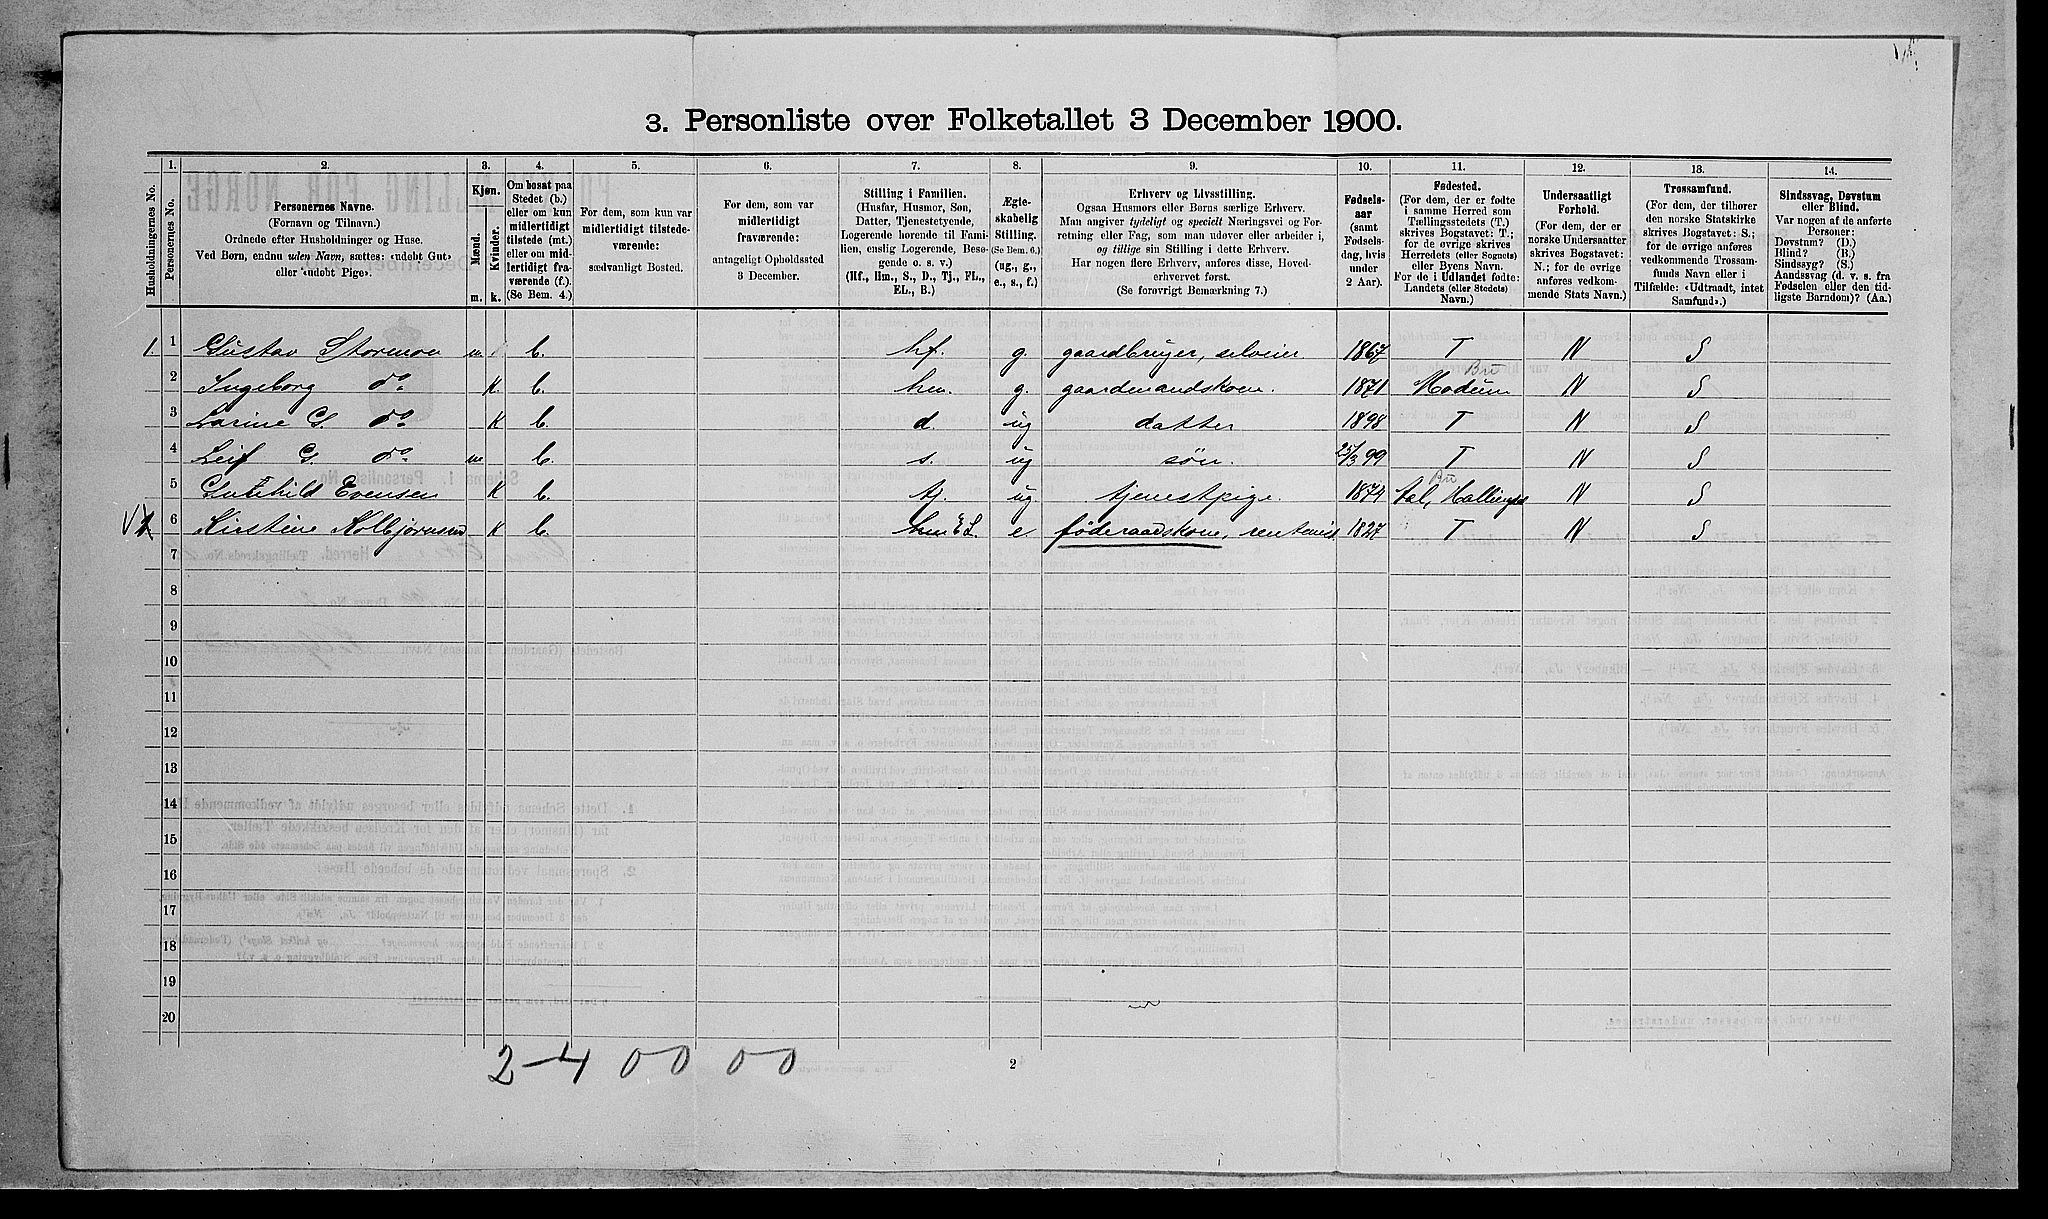 3. Personliste over Folketallet 3 December 1900.
Husholdningernes No.
1. Personernes No.
2. Personernes Navne.
(Fornavn og Tilnavn.)
Ordnede efter Husholdninger og Huse.
Ved Børn, endnu uden Navn, sættes: «udøbt Gut»
eller «udøbt Pige».
3. Kjøn.
Mænd. m.
Kvinder. k.
4. Om bosat paa
Stedet (b.)
eller om kun
midlertidigt
tilstede (mt.)
eller om mid-
lertidigt fra-
værende (f.).
(Se Bem. 4.)
5. For dem, som kun var
midlertidigt tilstede-
værende:
sædvanligt Bosted.
6. For dem, som var
midlertidigt
fraværende:
antageligt Opholdssted
3 December.
7. Stilling i Familien.
(Husfar, Husmor, Søn,
Datter, Tjenestetyende,
Logerende hørende til Fami-
lien, enslig Logerende, Besø-
gende o. s. v.)
(Hf., Hm., S., D., Tj., FL.,
EL., B.)
8. Ægte-
skabelig
Stilling.
(Se Bem. 6.)
(ug., g.,
e., s., f.)
9. Erhverv og Livsstilling.
Ogsaa Husmors eller Børns særlige Erhverv.
Man angiver tydeligt og specielt Næringsvei og For-
retning eller Fag, som man udøver eller arbeider i,
og tillige sin Stilling i dette Erhverv.
Har nogen flere Erhverv, anføres disse, Hoved-
erhvervet først.
(Se forøvrigt Bemærkning 7.)
10. Fødsels-
aar
(samt
Fødsels-
dag, hvis
under
2 Aar).
11. Fødested.
(For dem, der er fødte
i samme Herred som
Tællingsstedets (T.)
skrives Bogstavet: T.;
for de øvrige skrives
Herredets (eller Sognets)
eller Byens Navn.
For de i Udlandet fødte:
Landets (eller Stedets)
Navn.)
12. Undersaatligt
Forhold.
(For dem, der er
norske Undersaatter
skrives Bogstavet:
N.; for de øvrige
anføres vedkom-
mende Stats Navn.)
13. Trossamfund.
(For dem, der tilhører
den norske Statskirke
skrives Bogstavet: S.;
for de øvrige anføres
vedkommende Trossam-
funds Navn eller i
Tilfælde: «Udtraadt, intet
Samfund».)
14. Sindssvag, Døvstum
eller Blind.
Var nogen af de anførte
Personer:
Døvstum? (D.)
Blind? (B.)
Sindssyg? (S.)
Aandssvag (d. v. s. fra
Fødselen eller den tid-
ligste Barndom)? (Aa.)
1. 1 Gustav Stormoen m. b. hf. g. gaardbruger, selveier. 1867 T N S
2 Ingeborg do k. b. hm. g. gaardmandskone. 1871 Modum N S
3 Larine G. do k b. d. ug datter 1898 T N S
4 Leif G. do m b. s. ug søn. 25/3 99 T N S
5 Gunhild Evensen k b. tj. ug. tjenestpige. 1874 Aal, N S
6 Kirstine k b. EL. e føderaadskone, 1827 T N S
7
8
9
10
11
12
13
14
15
16
17
18
19
20
2-4 00 00
2